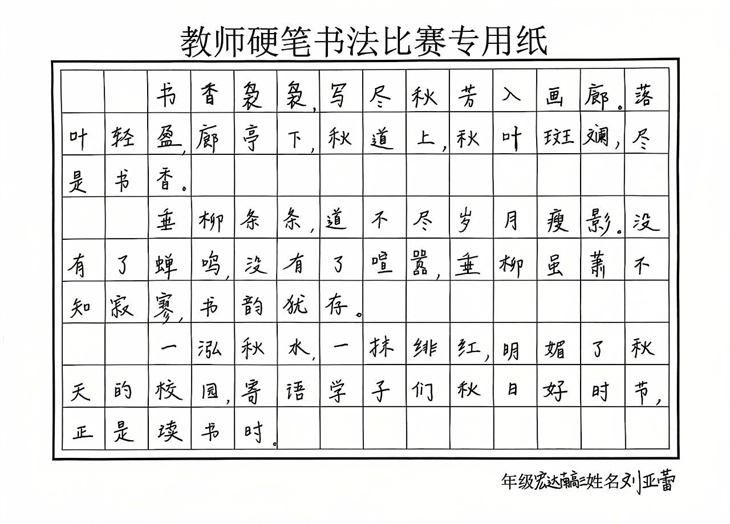 教师硬笔书法比赛专用纸
书香袅袅,写尽秋芳入画廊。落
叶轻盈,廊亭下,秋道上,秋叶斑斓,尽
是书香。
垂柳条条,道不尽岁月瘦影。没
有了蝉鸣,没有了喧嚣,垂柳虽萧不
知寂寥,书韵犹存。
一泓秋水,一抹绯红,明媚了秋
天的校园,寄语学子们秋日好时节,
正是读书时。
年级宏达南高三姓名刘亚蕾